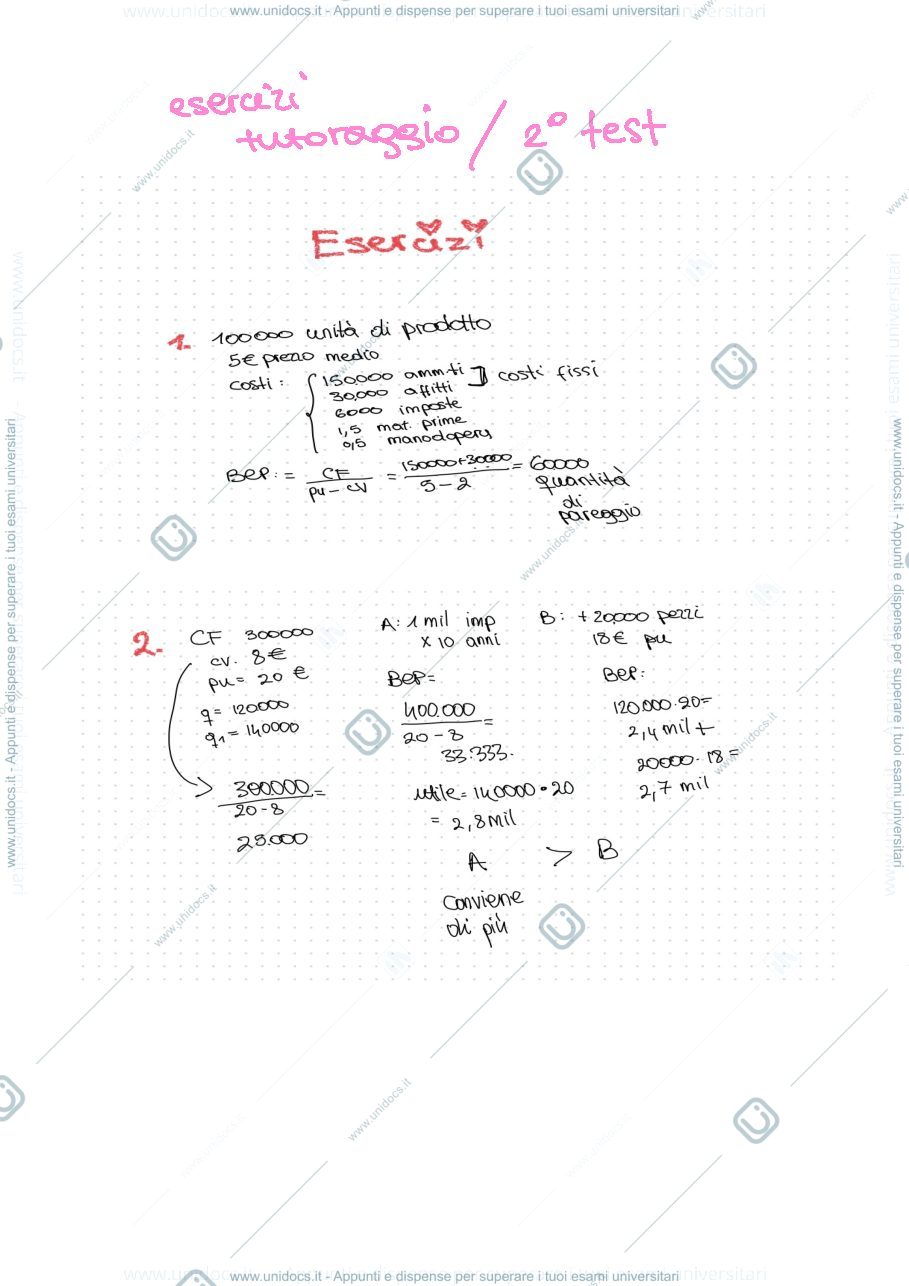 www.unidocs.it - Appunti e dispense per superare i tuoi esami universitari
esercizi
tutoraggio / 2° test
Esercizi
1. 100000 unità di prodotto
5€ prezzo medio
costi: 150.000 amm.ti
30.000 affitti
] costi fissi
6000 imposte
1,5 mat. prime
0,5 manodopera
BEP: = CF / pu - cv = 150000+30000 / 5-2 = 60000
quantità
di
pareggio
2. CF 300000
cv. 8€
pu = 20 €
q = 120000
q1 = 140000
300000 / 20-8 =
25.000
A: 1 mil imp
x 10 anni
BEP=
400.000 / 20-8 =
33.333.
utile = 140000 • 20
= 2,8 mil
B: +20.000 pezzi
18€ pu
BEP:
120.000·20=
2,4 mil +
20000·18=
2,7 mil
A > B
conviene
di più
www.unidocs.it - Appunti e dispense per superare i tuoi esami universitari
www.unidocs.it - Appunti e dispense per superare i tuoi esami universitari
www.unidocs.it - Appunti e dispense per superare i tuoi esami universitari
www.unidocs.it
www.unidocs.it
www.unidocs.it
www.unidocs.it
www.unidocs.it